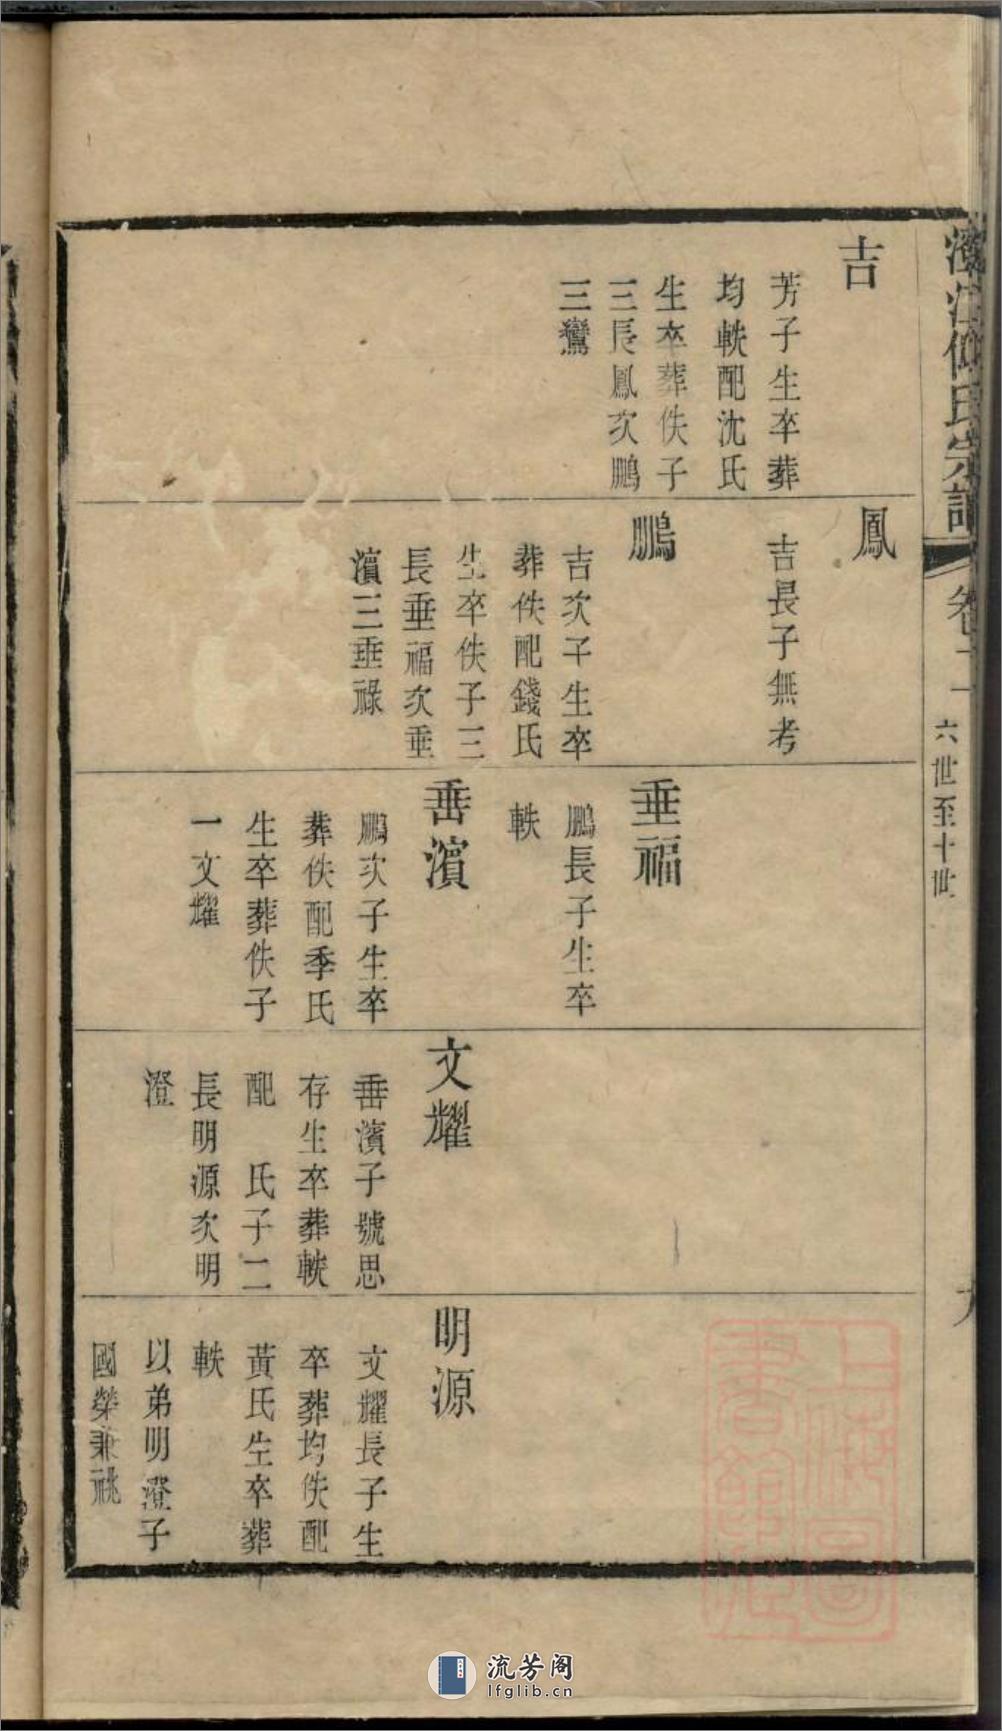 澄江何氏宗譜
卷二
六世至十世
九
吉
芳子生卒葬
均軼配沈氏
生卒葬佚子
三長鳳次鵬
三鸞
鳳
吉長子無考
鵬
吉次子生卒
葬佚配錢氏
生卒佚子三
長垂福次垂
濱三垂祿
垂福
鵬長子生卒
軼
垂濱
鵬次子生卒
葬佚配季氏
生卒葬佚子
一文耀
文耀
垂濱子號思
存生卒葬軼
配 氏子二
長明源次明
澄
明源
文耀長子生
卒葬均佚配
黃氏生卒葬
軼
以弟明澄子
國榮兼祧
上海圖
書館藏
流芳阁
lfglib.cn